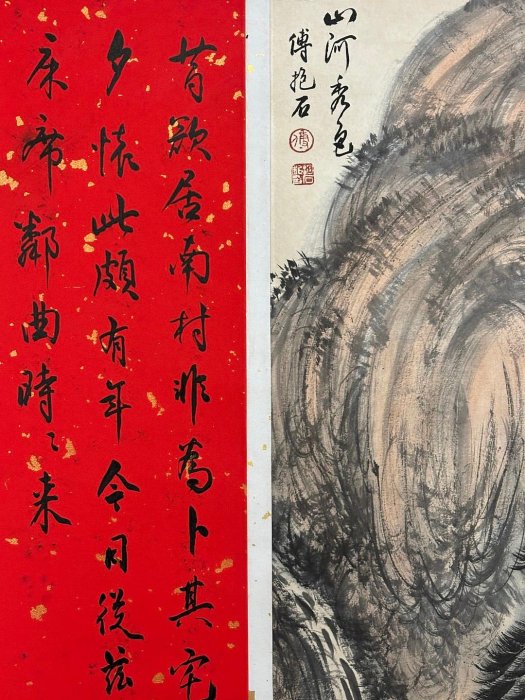 山河秀色
傅抱石
傅
昔欲居南村非為卜其宅
夕懷此頗有年今日從茲
床席鄰曲時〻来